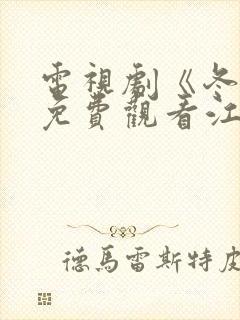 電視劇《冬
免費觀看江
德馬雷斯特皮